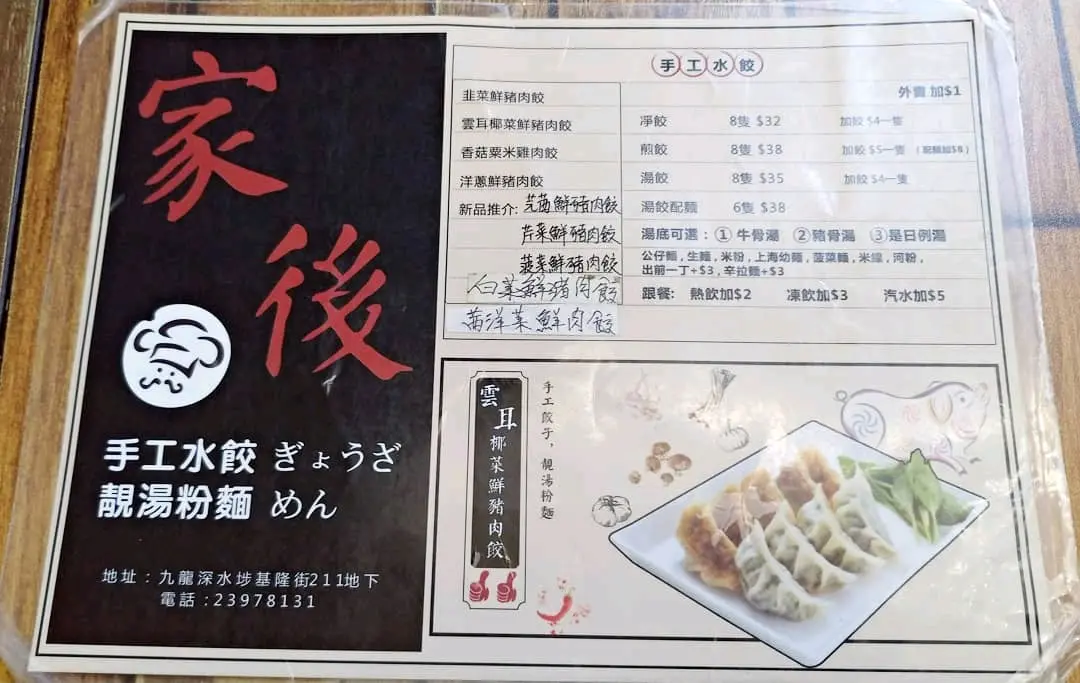 家後
手工水餃 ぎょうざ
靚湯粉麵 めん
地址：九龍深水埗基隆街211地下
電話:23978131
手工水餃
外賣 加$1
韭菜鮮豬肉餃
雲耳椰菜鮮豬肉餃
香菇粟米雞肉餃
洋蔥鮮豬肉餃
新品推介: 芫茜鮮豬肉餃
芹菜鮮豬肉餃
菠菜鮮豬肉餃
白菜鮮豬肉餃
西洋菜鮮肉餃
淨餃 8隻 $32 加餃 $4一隻
煎餃 8隻 $38 加餃 $5一隻 (配麵加$8)
湯餃 8隻 $35 加餃 $4一隻
湯餃配麵 6隻 $38
湯底可選：①牛骨湯 ②豬骨湯 ③是日例湯
公仔麵,生麵,米粉,上海幼麵,菠菜麵,米線,河粉,
出前一丁+$3,辛拉麵+$3
跟餐: 熱飲加$2 凍飲加$3 汽水加$5
雲耳椰菜鮮豬肉餃
手工餃子，靚湯粉麵